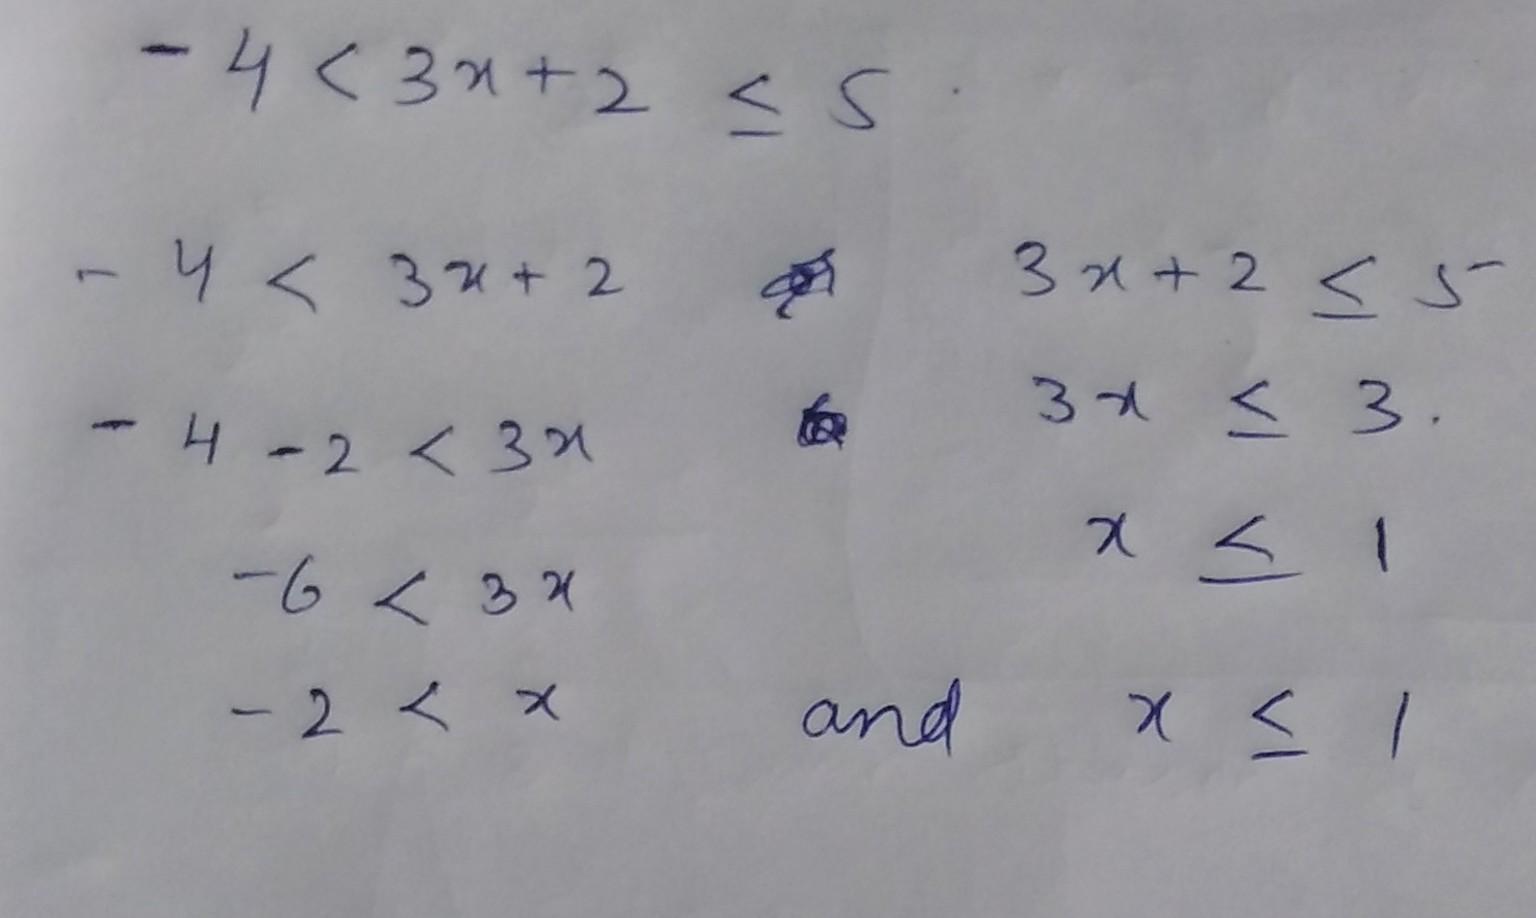 - 4 < 3x + 2 ≤ 5.
- 4 < 3x + 2 3x + 2 ≤ 5
- 4 - 2 < 3x 3x ≤ 3.
x ≤ 1
-6 < 3x
-2 < x and x ≤ 1